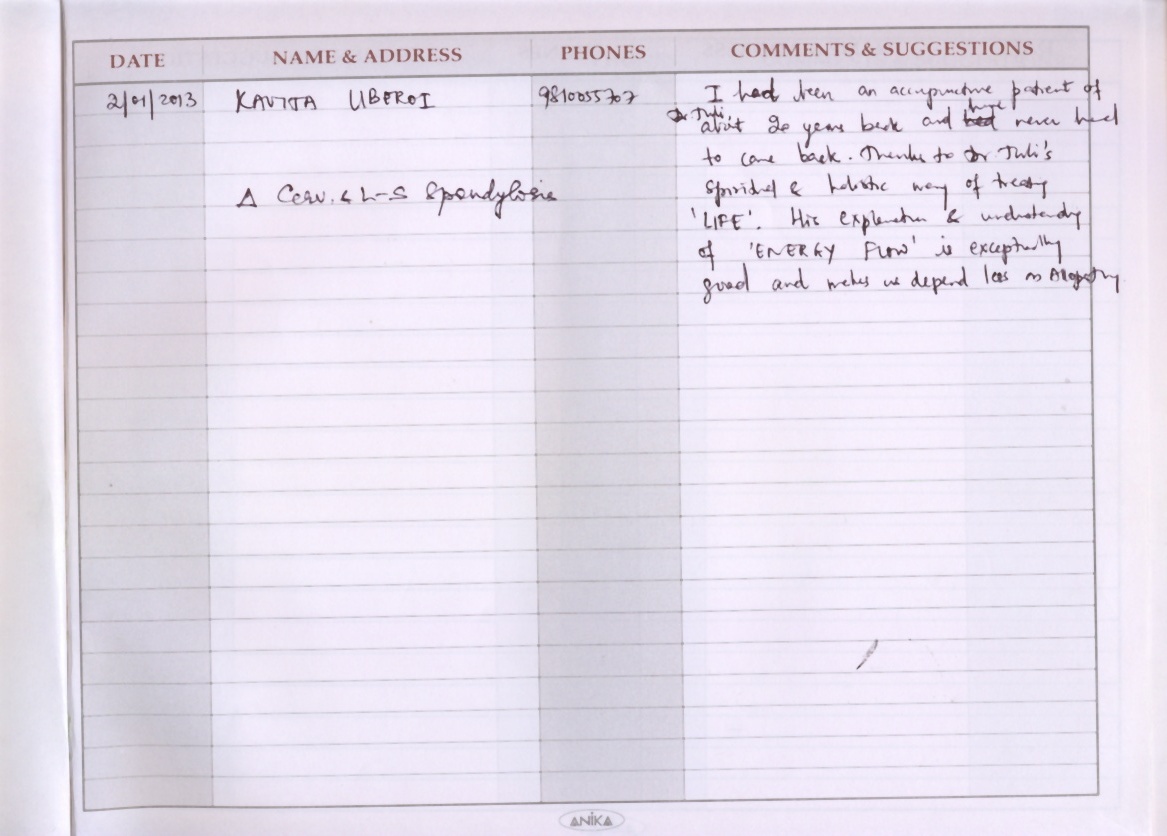 DATE NAME & ADDRESS PHONES COMMENTS & SUGGESTIONS
2/01/2013 KAVITA UBEROI 9810055707 I had been an accupuncture patient of
Dr. Tuli,
about 20 years back and have never had
to come back. Thanks to Dr. Tuli's
Δ Cerv. & L-S Spondylosis
spiritual & holistic way of treating
'LIFE'. His explanation & understanding
of 'ENERGY FLOW' is exceptionally
good and makes us depend less on Allopathy
ANIKA